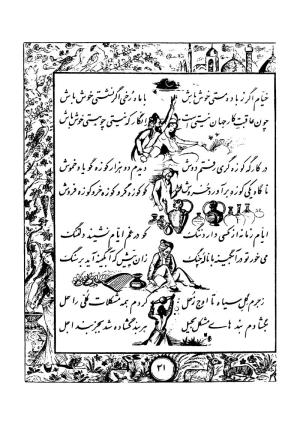 خیام اگر ز باده مستی خوش باش با ماه رخی اگر نشستی خوش باش
چون عاقبت کار جهان نیستی است انگار که نیستی چو هستی خوش باش
در کارگه کوزه گری رفتم دوش دیدم دو هزار کوزه گویا و خموش
ناگاه یکی کوزه برآورد خروش کو کوزه گر و کوزه خر و کوزه فروش
ایام زمانه از کسی دارد ننگ کو در غم ایام نشیند دلتنگ
می خور تو در آبگینه با ناله چنگ زان پیش که آبگینه آید بر سنگ
از جرم گل سیاه تا اوج زحل کردم همه مشکلات کلی را حل
بگشادم بندهای مشکل بحیل هر بند گشاده شد بجز بند اجل
۳۱